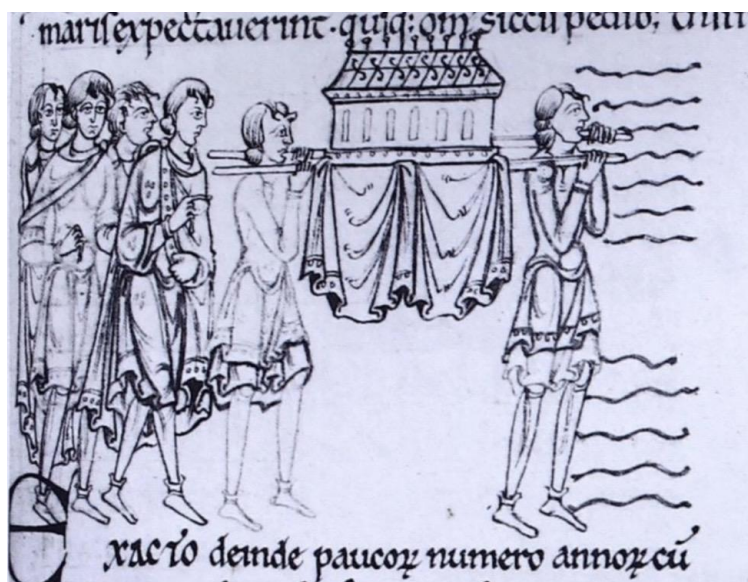 maris expectauerint. quiq; om̅ siccis pedib;
XACTO deinde paucoꝝ numero annoꝝ cu̅